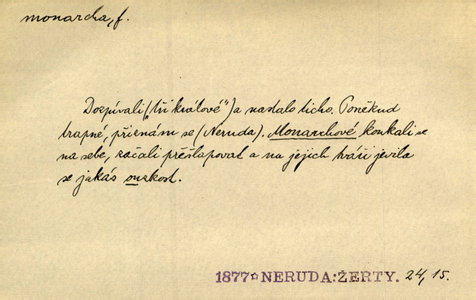 monarcha, f.
Dozpívali („tři králové“) a nastalo ticho. Poněkud
trapné, přiznám se (Neruda). Monarchové koukali se
na sebe, začali přešlapovat a na jejich tváři jevila
se jakás ouzkost.
1877 NERUDA: ŽERTY. 24, 15.